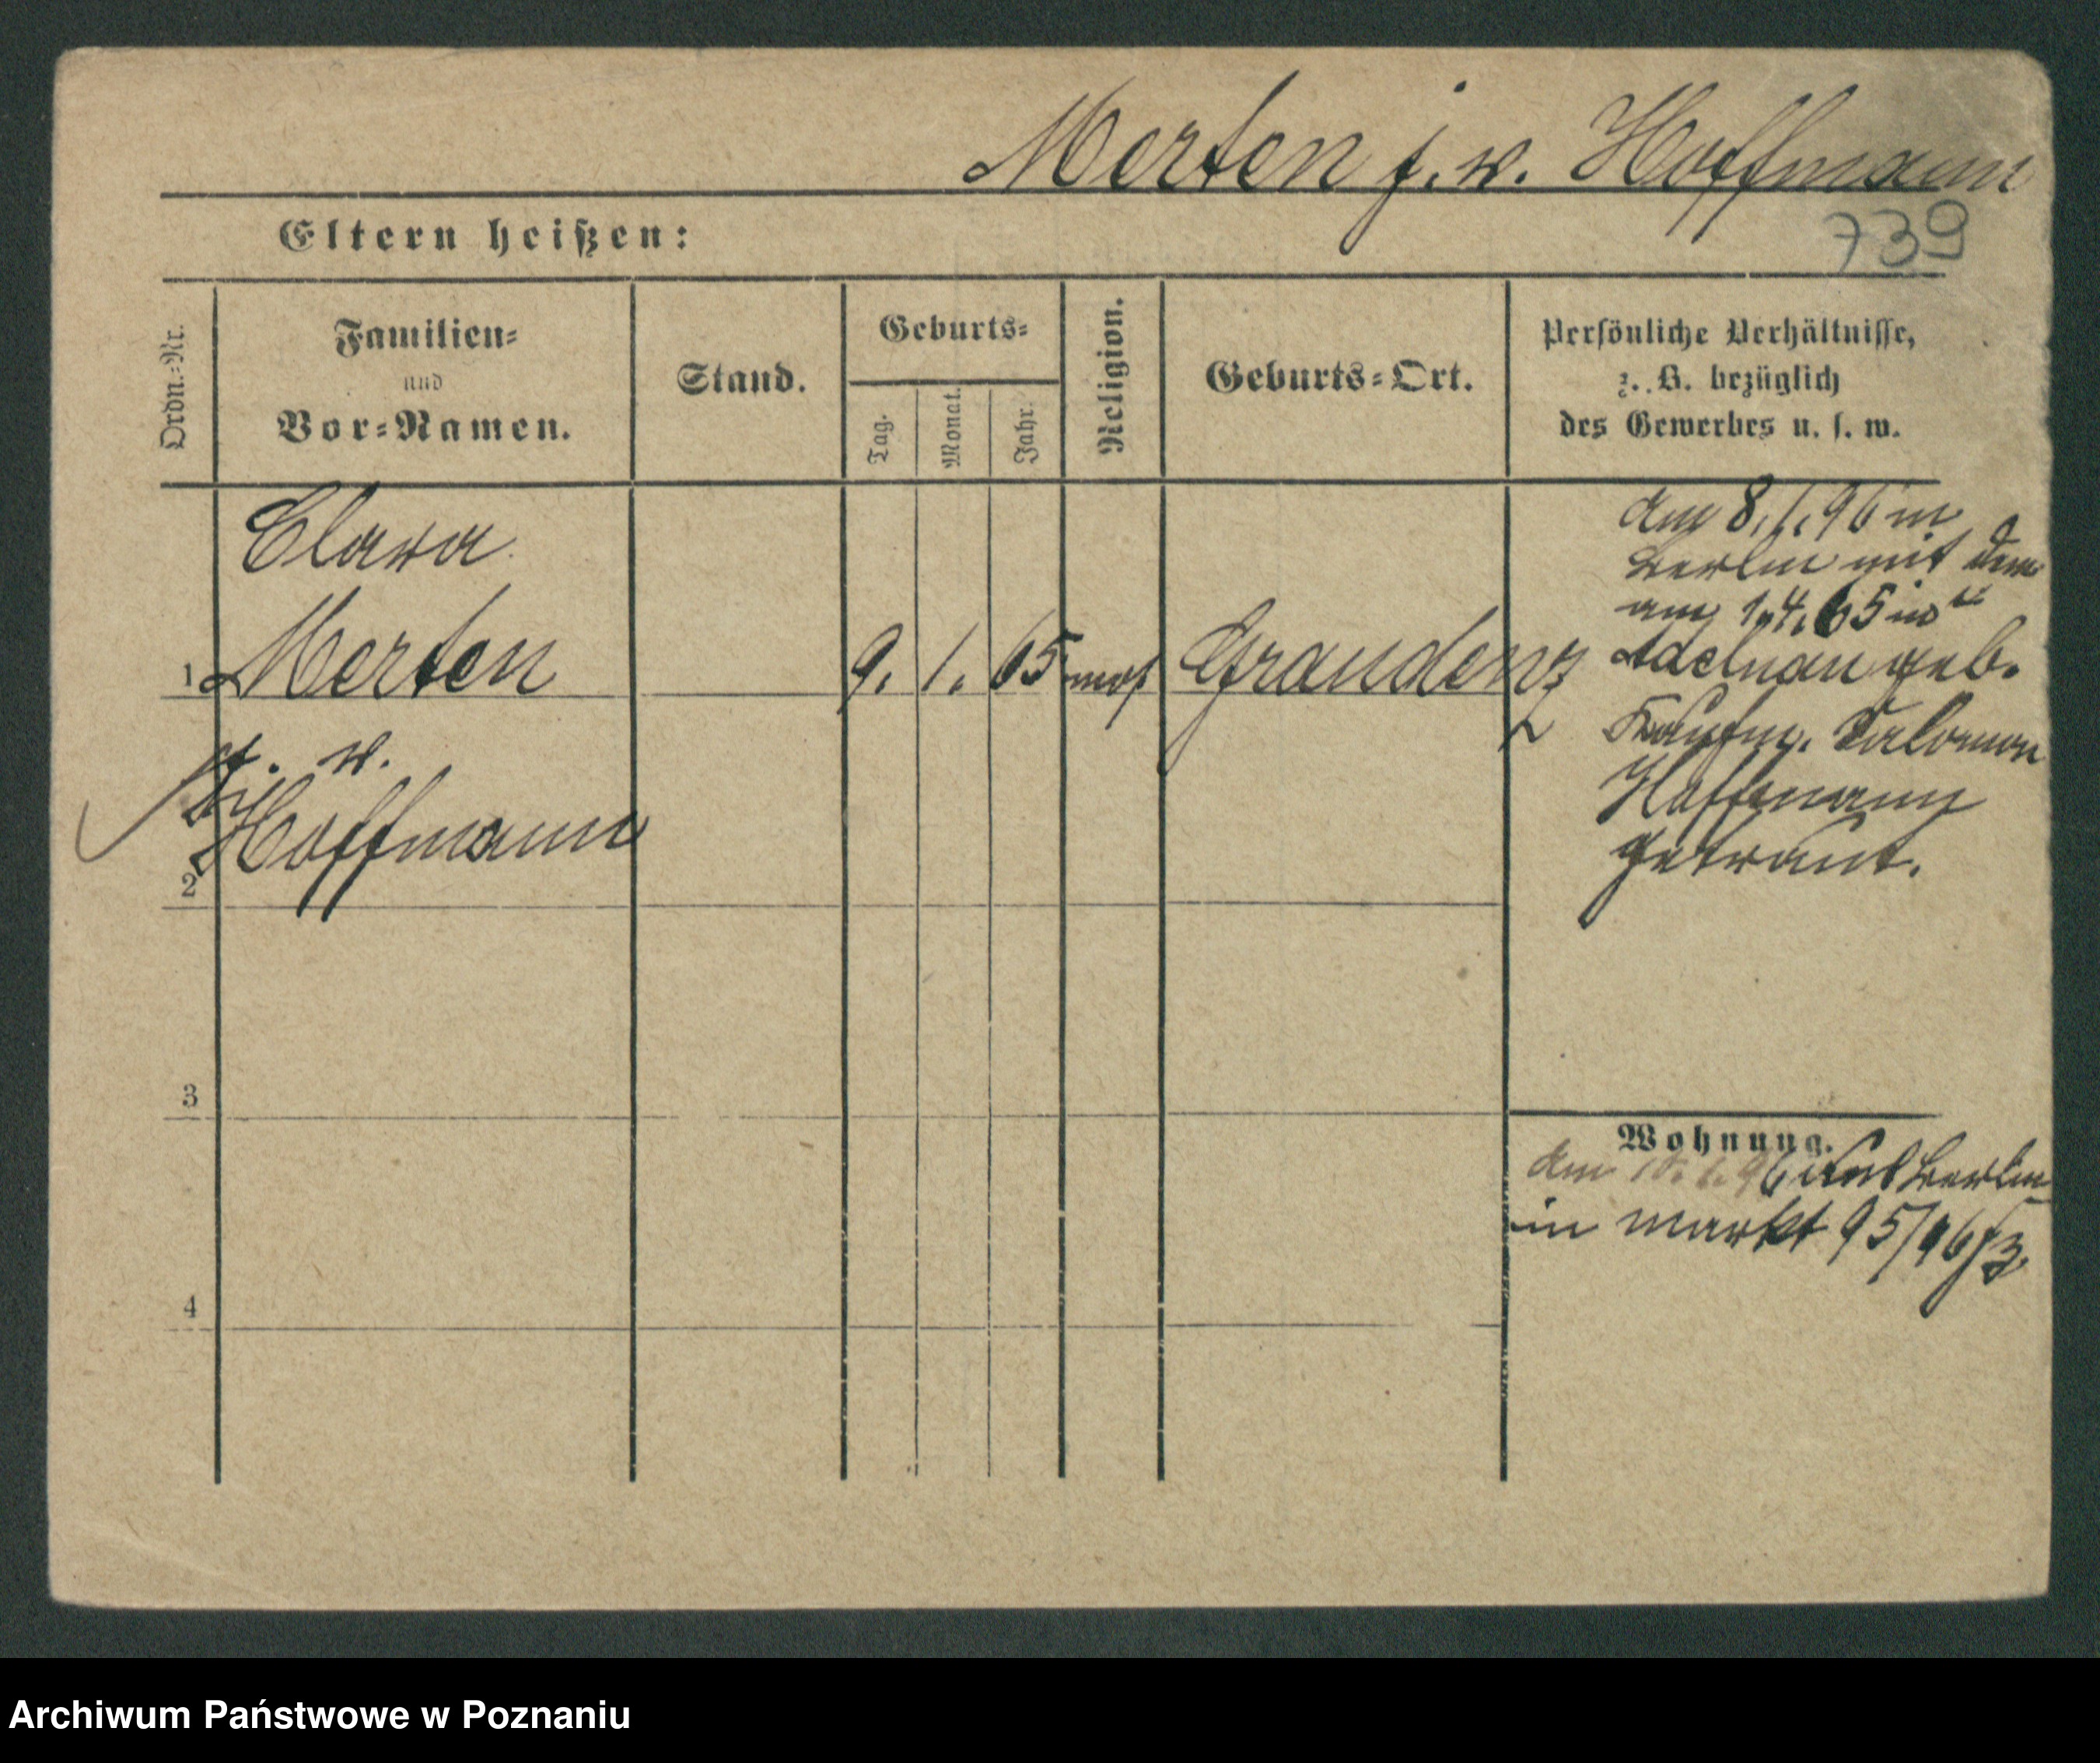 Merten j. v. Hoffmann
739
Eltern heißen:
Ordn.-Nr.
Familien-
und
Vor-Namen.
Stand.
Geburts-
Tag.
Monat.
Jahr.
Religion.
Geburts-Ort.
Persönliche Verhältnisse,
z. B. bezüglich
des Gewerbes u. s. w.
Clara
1 Merten 9. 1. 65 mos Graudenz
j. v.
Hoffmann
2
3
4
am 8.1.96 in
Berlin mit dem
am 1.4.65 in
Adelnau geb.
Kaufm. Salomon
Hoffmann
getraut.
Wohnung.
am 10.1.96 nach Berlin
markt 95/96
Archiwum Państwowe w Poznaniu